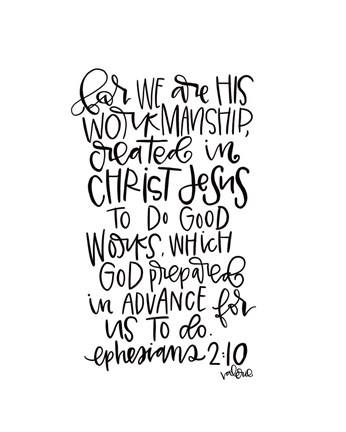 for WE are HIS
WORKMANSHIP,
created in
CHRIST JESUS
TO DO GOOD
WORKS, WHICH
GOD prepared
in ADVANCE for
US TO do.
ephesians 2:10
valerie